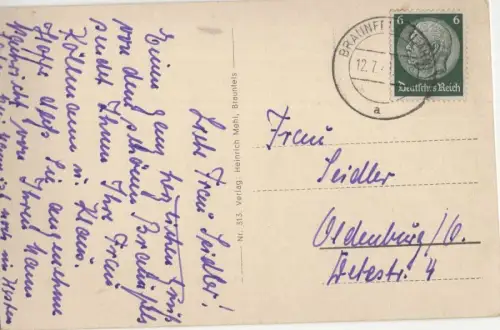 Liebe Frau Seidler!
Einen ganz herzlichen Gruß
von dem schönen Braunfels
sendet Ihnen Ihre Frau
Köllmann u. Klaus.
Hoffe daß Sie angenehme
Nachricht von Ihrem
noch im Westen
Nr. 313. Verlag: Heinrich Mehl, Braunfels
BRAUNFELS
12.7.
a
6 6
Deutsches Reich
Frau
Seidler
Oldenburg/O.
4